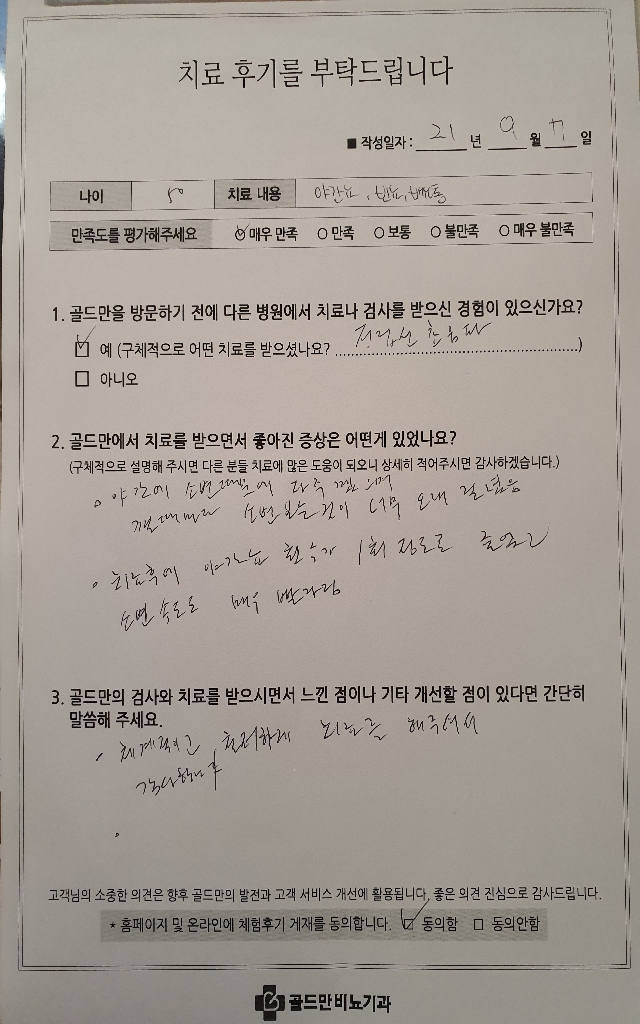 치료 후기를 부탁드립니다
■ 작성일자 : 21 년 9 월 17 일
나이 50 치료 내용 야간뇨, 빈뇨,
만족도를 평가해주세요 매우 만족 ○ 만족 ○ 보통 ○ 불만족 ○ 매우 불만족
1. 골드만을 방문하기 전에 다른 병원에서 치료나 검사를 받으신 경험이 있으신가요?
☑ 예 (구체적으로 어떤 치료를 받으셨나요? 전립선 초음파 )
□ 아니오
2. 골드만에서 치료를 받으면서 좋아진 증상은 어떤게 있었나요?
(구체적으로 설명해 주시면 다른 분들 치료에 많은 도움이 되오니 상세히 적어주시면 감사하겠습니다.)
야간에 소변때문에 자주
소변보는것이 너무 오래 걸렸음
치료후에 야간뇨 횟수가 1회 정도로 줄었고
소변 속도도 매우 빨라짐
3. 골드만의 검사와 치료를 받으시면서 느낀 점이나 기타 개선할 점이 있다면 간단히
말씀해 주세요.
체계적이고 철저하게 치료를 해주셔서
감사합니다
고객님의 소중한 의견은 향후 골드만의 발전과 고객 서비스 개선에 활용됩니다. 좋은 의견 진심으로 감사드립니다.
* 홈페이지 및 온라인에 체험후기 게재를 동의합니다. ☑ 동의함 □ 동의안함
골드만비뇨기과